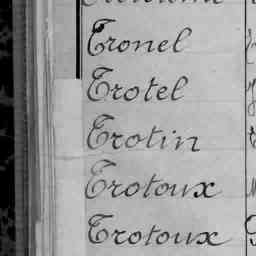 Tronel
Trotel
Trotin
Trotoux
Trotoux